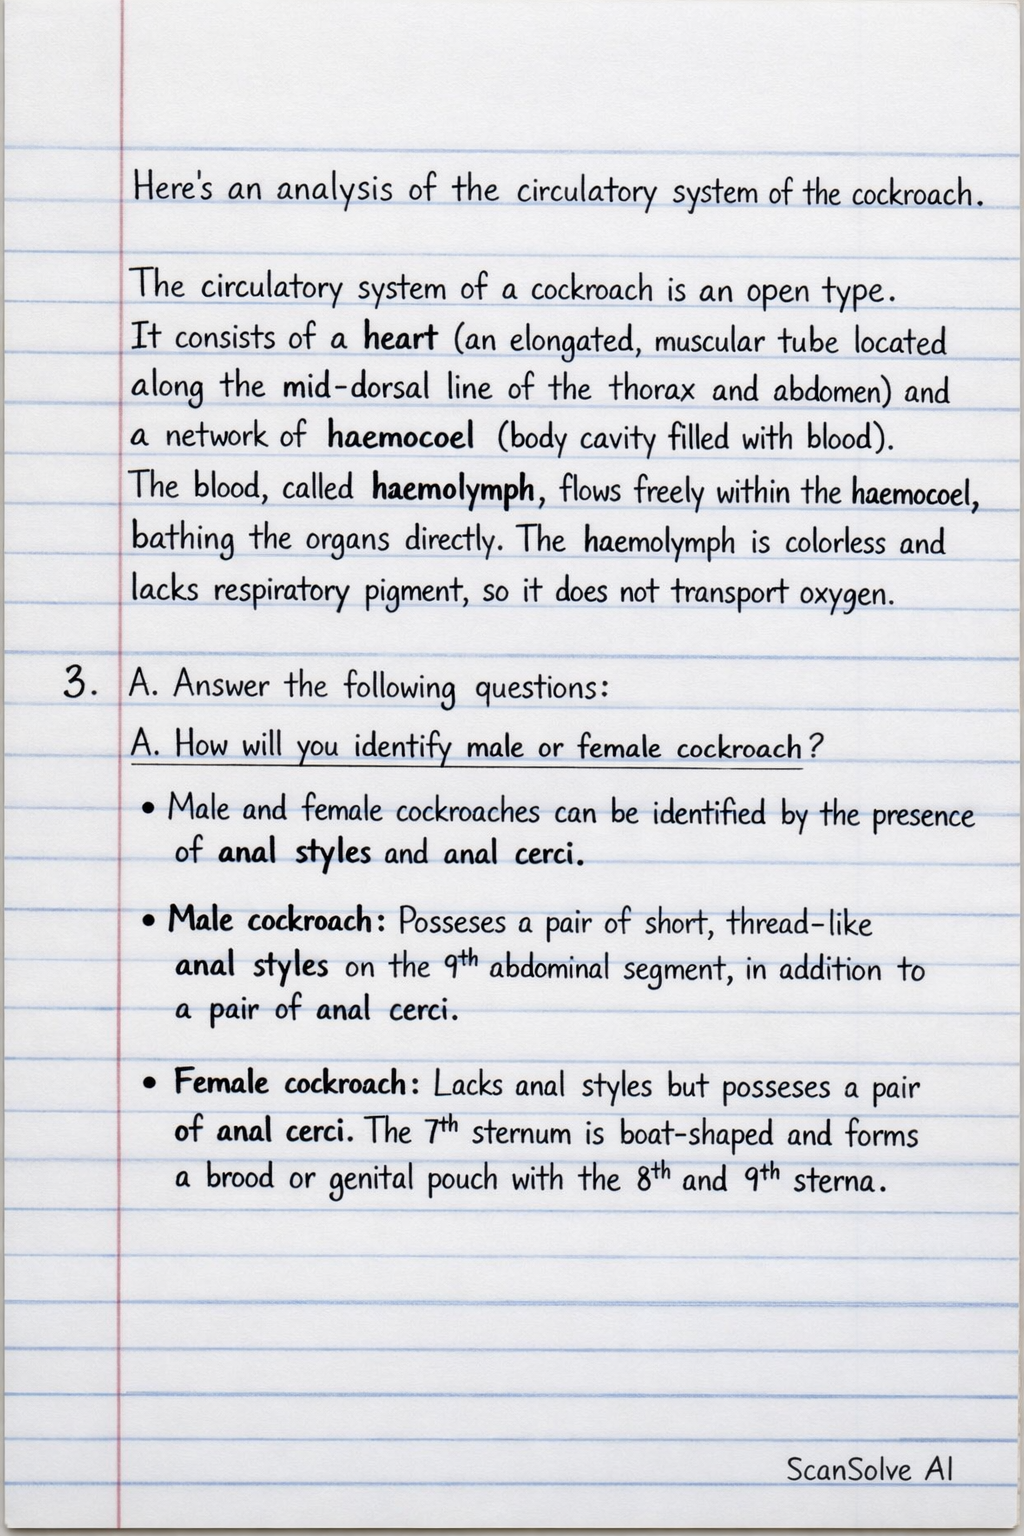 Here's an analysis of the circulatory system of the cockroach.
The circulatory system of a cockroach is an open type.
It consists of a heart (an elongated, muscular tube located
along the mid-dorsal line of the thorax and abdomen) and
a network of haemocoel (body cavity filled with blood).
The blood, called haemolymph, flows freely within the haemocoel,
bathing the organs directly. The haemolymph is colorless and
lacks respiratory pigment, so it does not transport oxygen.
3. A. Answer the following questions:
A. How will you identify male or female cockroach?
• Male and female cockroaches can be identified by the presence
of anal styles and anal cerci.
• Male cockroach: Posseses a pair of short, thread-like
anal styles on the 9th abdominal segment, in addition to
a pair of anal cerci.
• Female cockroach: Lacks anal styles but posseses a pair
of anal cerci. The 7th sternum is boat-shaped and forms
a brood or genital pouch with the 8th and 9th sterna.
ScanSolve AI